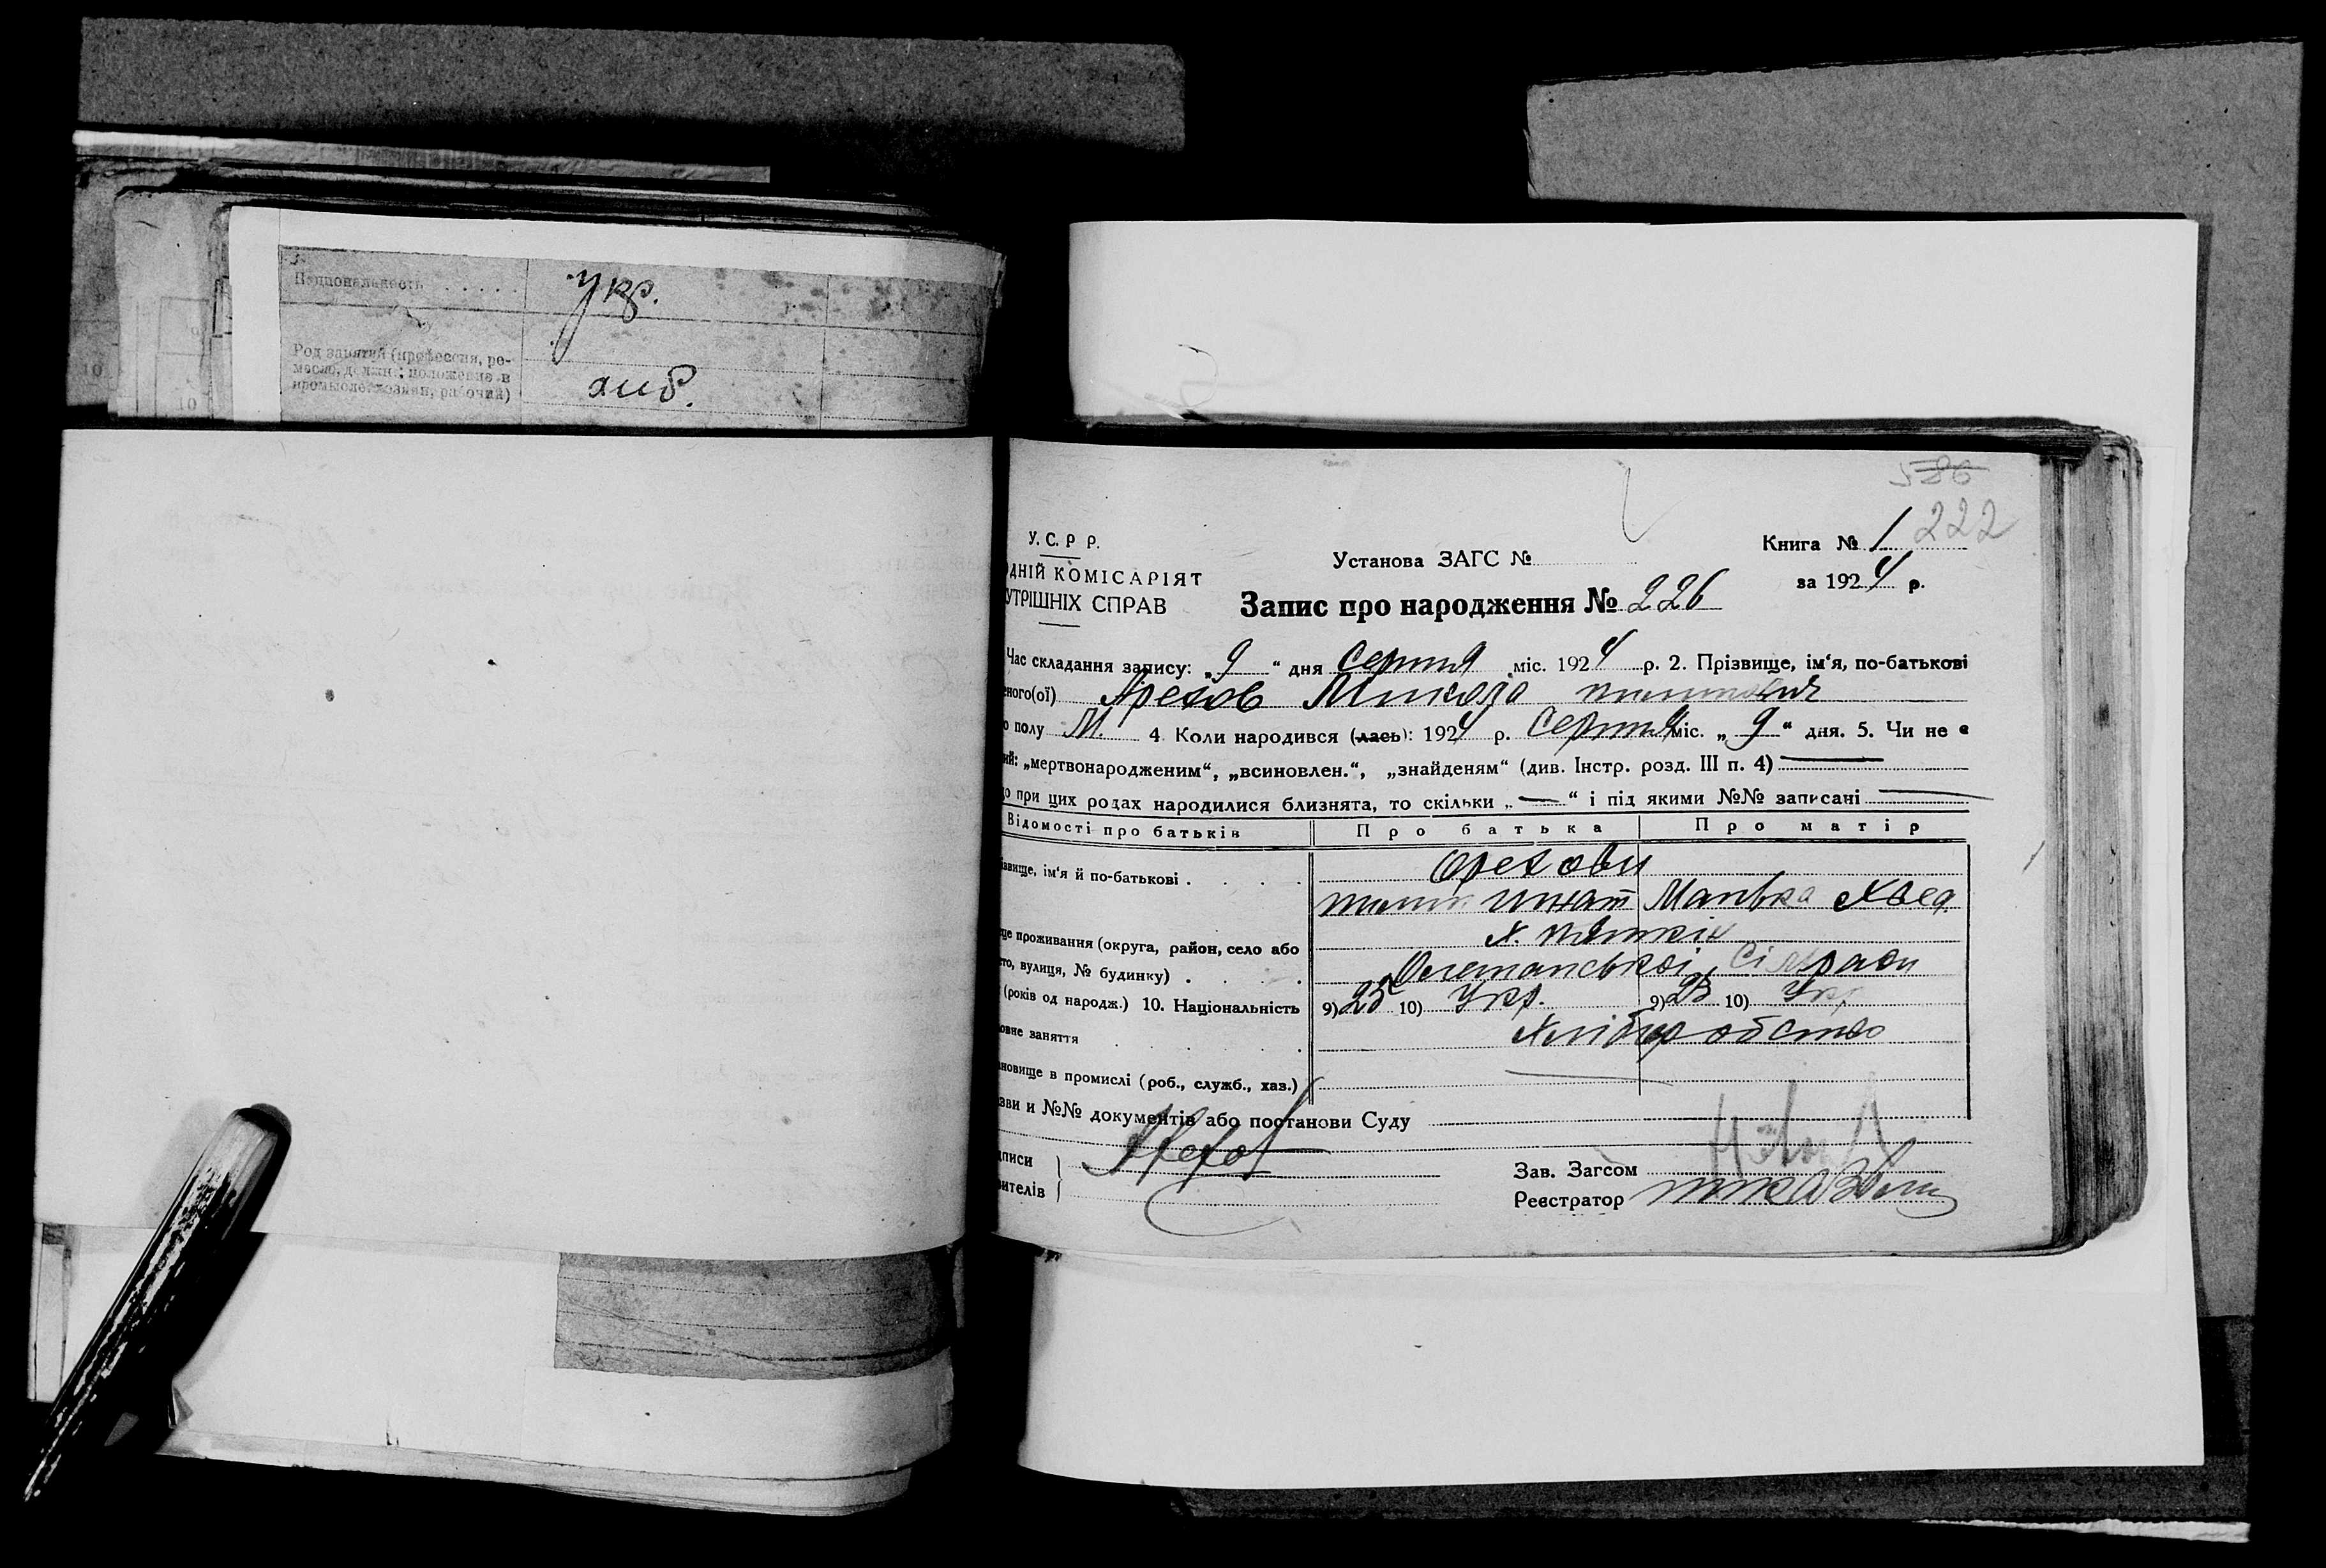 Национальность
укр.
Род занятий (профессия, ре-
месло, должн.; положение в
промысле: хозяин, рабочий)
хиб.
10
10
586
222
У.С.Р Р.
Установа ЗАГС №
Книга № 1
ДНІЙ КОМІСАРІЯТ
за 1924 р.
УТРІШНІХ СПРАВ
Запис про народження № 226
Час складання запису: „9“ дня Серпня міс. 1924 р. 2. Прізвище, ім'я, по-батькові
ного(ої) Арехов Микола
полу М. 4 Коли народився (лась): 1924 р. Серпня міс. „9“ дня. 5. Чи не є
ий: „мертвонародженим“, „всиновлен.“, „знайденям“ (див. Інстр. розд. III п. 4) —
о при цих родах народилися близнята, то скільки „—“ і під якими №№ записані —
Відомості про батьків Про батька Про матір
Орехови
ізвище, ім'я й по-батькові
Марька Хвед.
ще проживання (округа, район, село або
то, вулиця, № будинку) Сільради
(років од народж.) 10. Національність 9) 25 10) Укр. 9) 23 10) Укр.
овне заняття Хліборобство
новище в промислі (роб., служб., хаз.) —
зви и №№ документів або постанови Суду
дписи Арехов
Зав. Загсом
вителів
Реєстратор